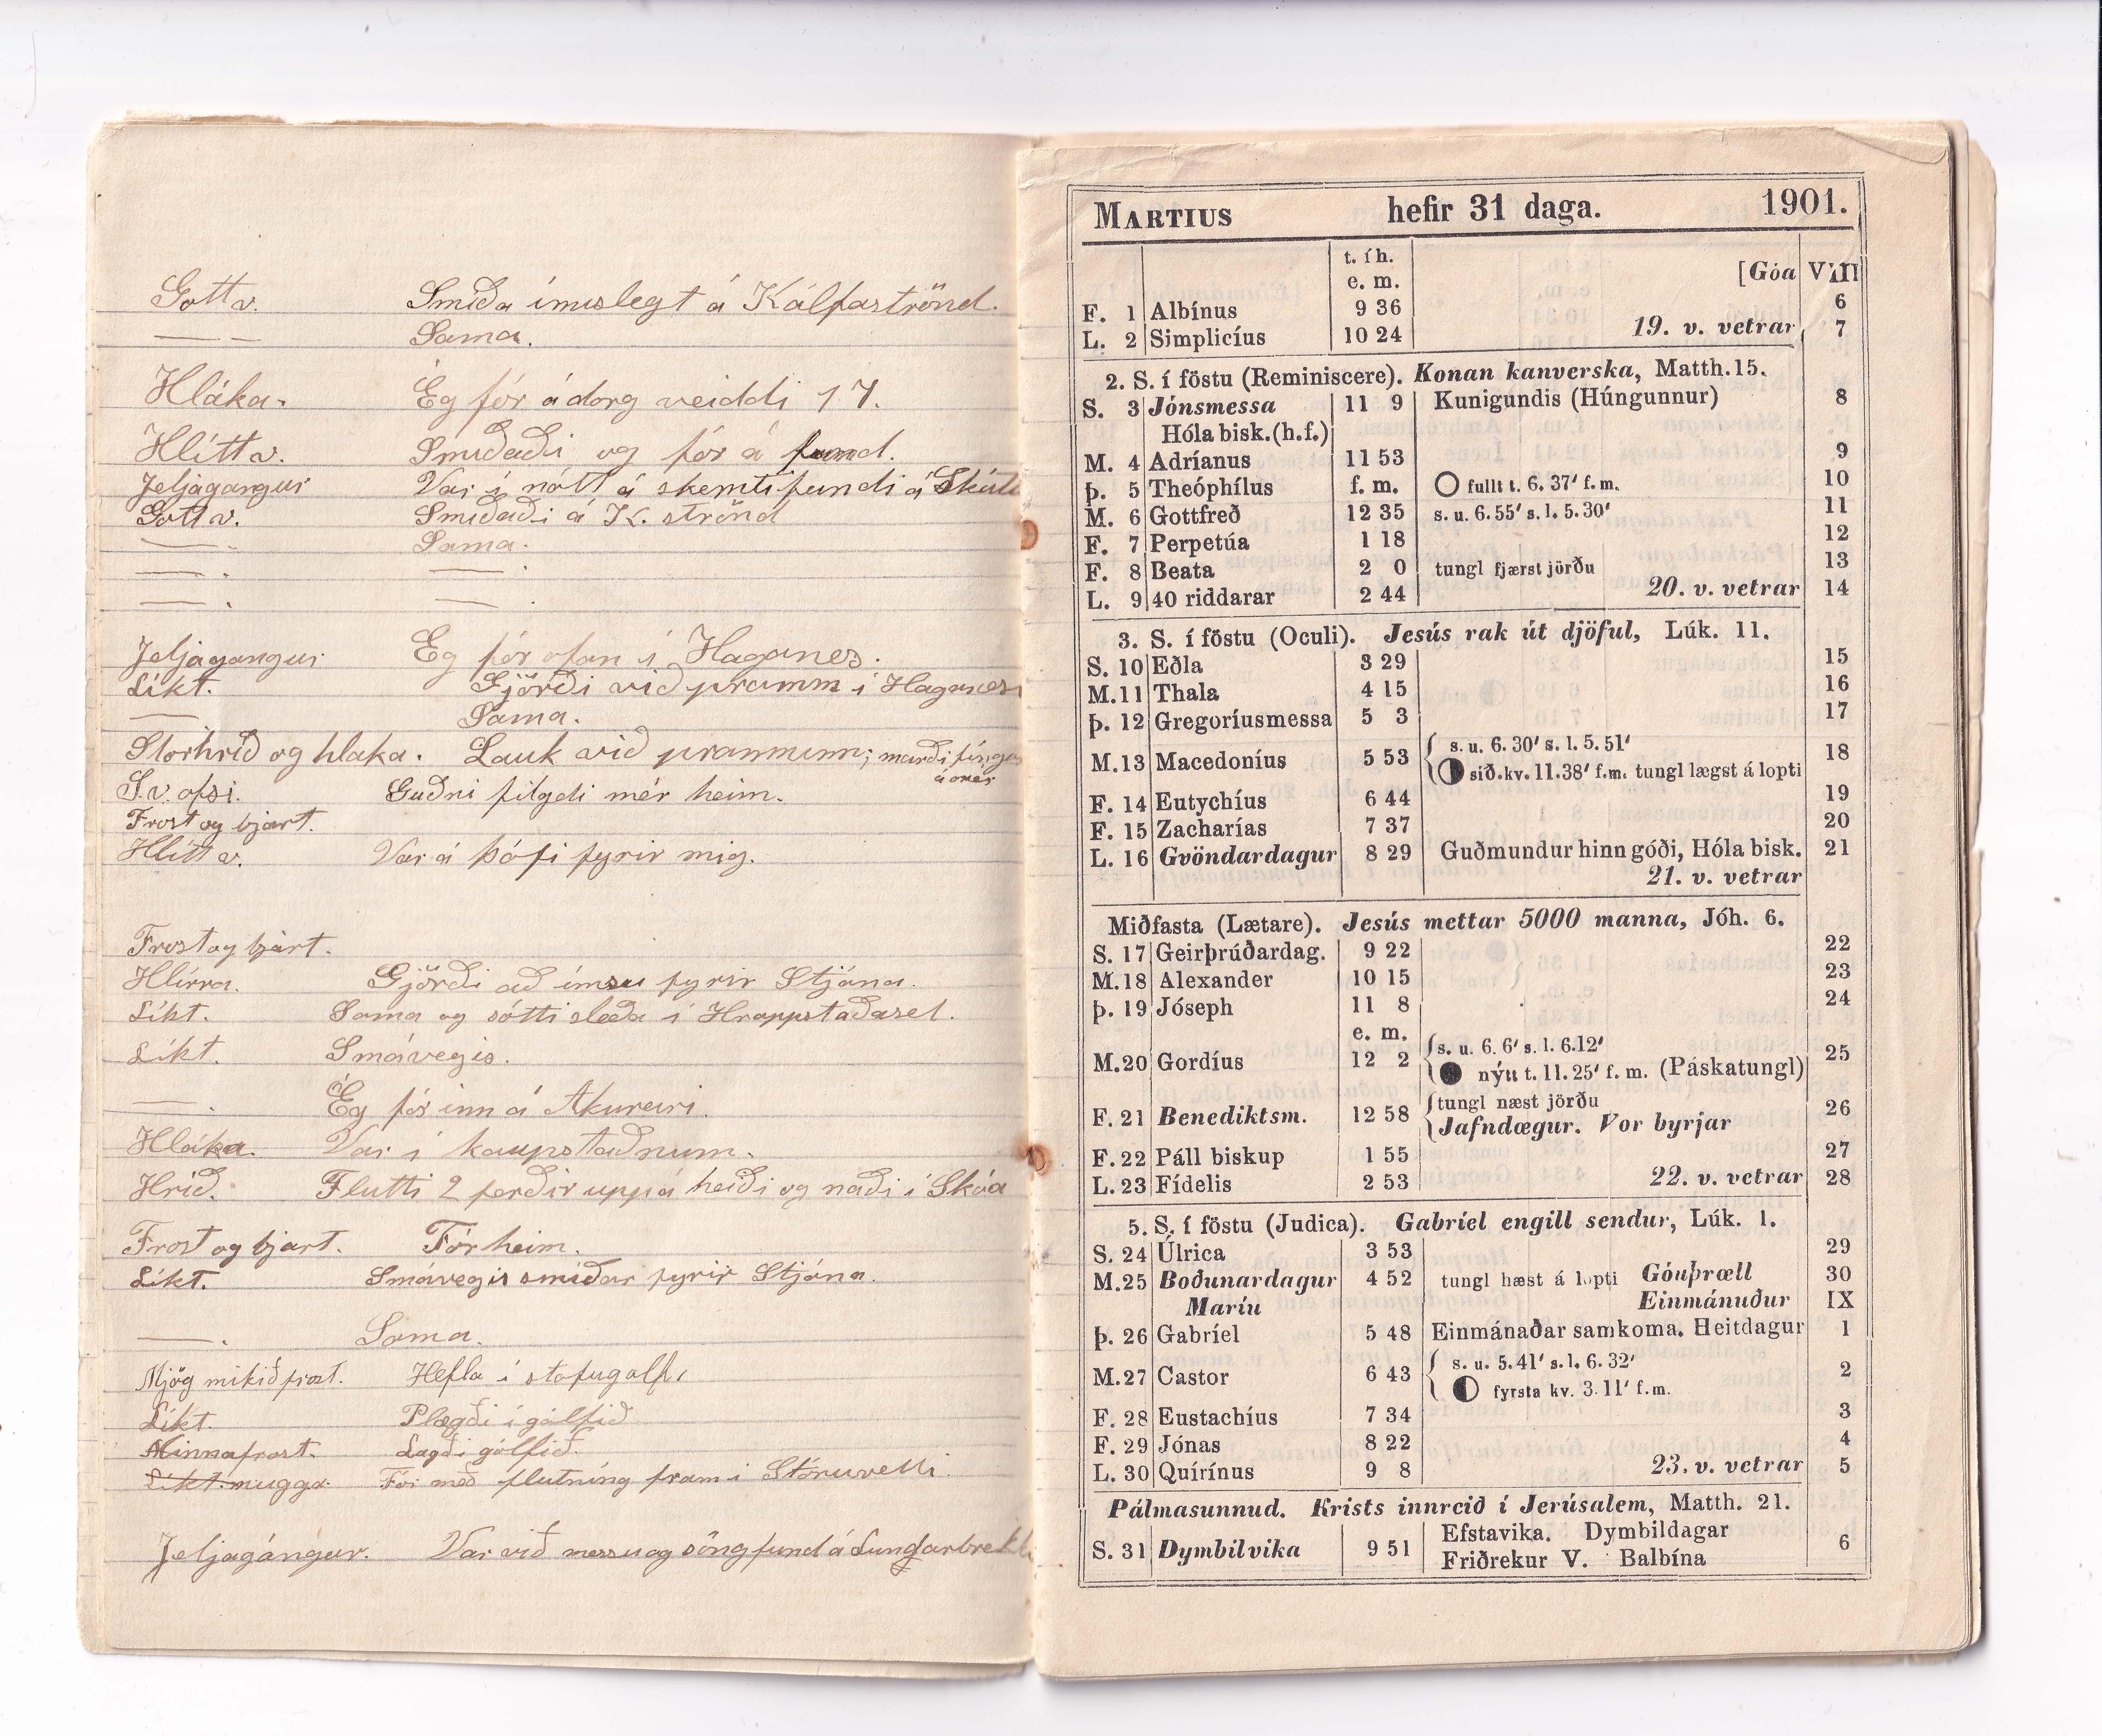 Gott v. Smíða ímislegt á Kálfaströnd.
— — Sama.
Hláka. Ég fór á dorg veiddi 17.
Hlítt v. Smiðaði og fór á fund.
Jeljagangur Var í nótt á skemtifundi á Skútu
Gott v. Smiðaði á K. strönd
—. Sama.
—. —.
—. —.
Jeljagangur Ég fór ofan í Haganes.
Líkt. Gjörði við pramm í Haganesi
— Sama.
Stórhríð og hlaka. Lauk við pramminn; marði fingur
á mér
S.v. ofsi. Guðni filgdi mér heim.
Frost og bjart.
Hlítt v. Var á þófi fyrir mig.
Frost og bjart.
Hlírra. Gjörði að ímsu fyrir Stjána.
Líkt. Sama og sótti sleða í Hrappstaðasel.
Líkt. Smávegis.
—. Ég fór inn á Akureiri.
Hláka. Var í kaupstaðnum.
Hríð. Flutti 2 ferðir uppá heiði og náði í Skóa
Frost og bjart. Fór heim.
Líkt. Smávegis smíðar fyrir Stjána.
—. Sama.
Mjög mikið frost. Hefla í stofugólf,
Líkt. Plægði í gólfið
Minna frost. Lagði gólfið.
Líkt. mugga. Fór með flutníng fram í Stóruvelli.
Jeljagángur. Var við messu og söngfund á Lundarbrekku
MARTIUS hefir 31 daga. 1901.
t. í h.
e. m. [Góa VIII
F. 1 Albínus 9 36 6
L. 2 Simplicíus 10 24 19. v. vetrar 7
2. S. í föstu (Reminiscere). Konan kanverska, Matth. 15.
S. 3 Jónsmessa 11 9 Kunigundis (Húngunnur) 8
Hóla bisk. (h.f.)
M. 4 Adríanus 11 53 9
Þ. 5 Theóphílus f. m. ○ fullt t. 6. 37' f. m. 10
M. 6 Gottfreð 12 35 s. u. 6.55' s. l. 5.30' 11
F. 7 Perpetúa 1 18 12
F. 8 Beata 2 0 tungl fjærst jörðu 13
L. 9 40 riddarar 2 44 20. v. vetrar 14
3. S. í föstu (Oculi). Jesús rak út djöful, Lúk. 11.
S. 10 Eðla 3 29 15
M. 11 Thala 4 15 16
Þ. 12 Gregoríusmessa 5 3 17
M. 13 Macedoníus 5 53 s. u. 6. 30' s. l. 5. 51' 18
◑ síð. kv. 11.38' f.m. tungl lægst á lopti
F. 14 Eutychíus 6 44 19
F. 15 Zacharías 7 37 20
L. 16 Gvöndardagur 8 29 Guðmundur hinn góði, Hóla bisk. 21
21. v. vetrar
Miðfasta (Lætare). Jesús mettar 5000 manna, Jóh. 6.
S. 17 Geirþrúðardag. 9 22 22
M. 18 Alexander 10 15 23
Þ. 19 Jóseph 11 8 24
e. m.
M. 20 Gordíus 12 2 s. u. 6. 6' s. l. 6.12' 25
● nýtt t. 11. 25' f. m. (Páskatungl)
F. 21 Benediktsm. 12 58 tungl næst jörðu 26
Jafndægur. Vor byrjar
F. 22 Páll biskup 1 55 27
L. 23 Fídelis 2 53 22. v. vetrar 28
5. S. í föstu (Judica). Gabríel engill sendur, Lúk. 1.
S. 24 Úlrica 3 53 29
M. 25 Boðunardagur 4 52 tungl hæst á lopti Góuþræll 30
Maríu Einmánuður IX
Þ. 26 Gabríel 5 48 Einmánaðar samkoma. Heitdagur 1
M. 27 Castor 6 43 s. u. 5. 41' s. l. 6. 32' 2
◐ fyrsta kv. 3. 11' f. m.
F. 28 Eustachíus 7 34 3
F. 29 Jónas 8 22 4
L. 30 Quírínus 9 8 23. v. vetrar 5
Pálmasunnud. Krists innreið í Jerúsalem, Matth. 21.
S. 31 Dymbilvika 9 51 Efstavika. Dymbildagar 6
Friðrekur V. Balbína